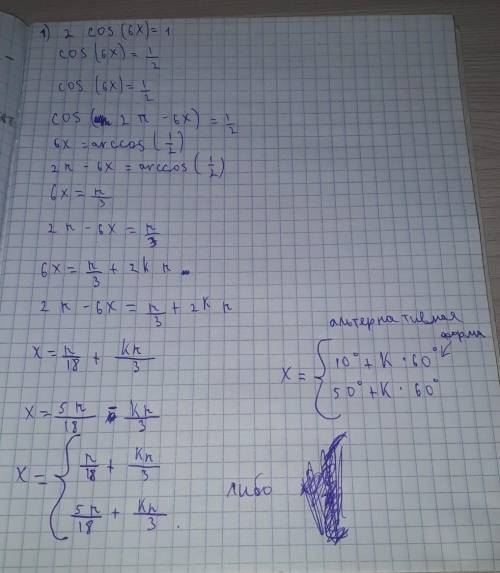 1) 2 cos(6x)=1
cos(6x)=1/2
cos(6x)=1/2
cos(2π-6x)=1/2
6x=arccos(1/2)
2π-6x=arccos(1/2)
6x=π/3
2π-6x=π/3
6x=π/3+2kπ
2π-6x=π/3+2kπ
x=π/18+kπ/3
x=5π/18-kπ/3
x={π/18+kπ/3
5π/18+kπ/3.
либо
альтернативная
форма
x={10°+k·60°
50°+k·60°